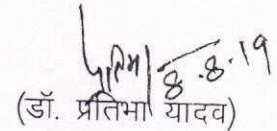 प्रतिभा 8.8.19
(डॉ. प्रतिभा यादव)